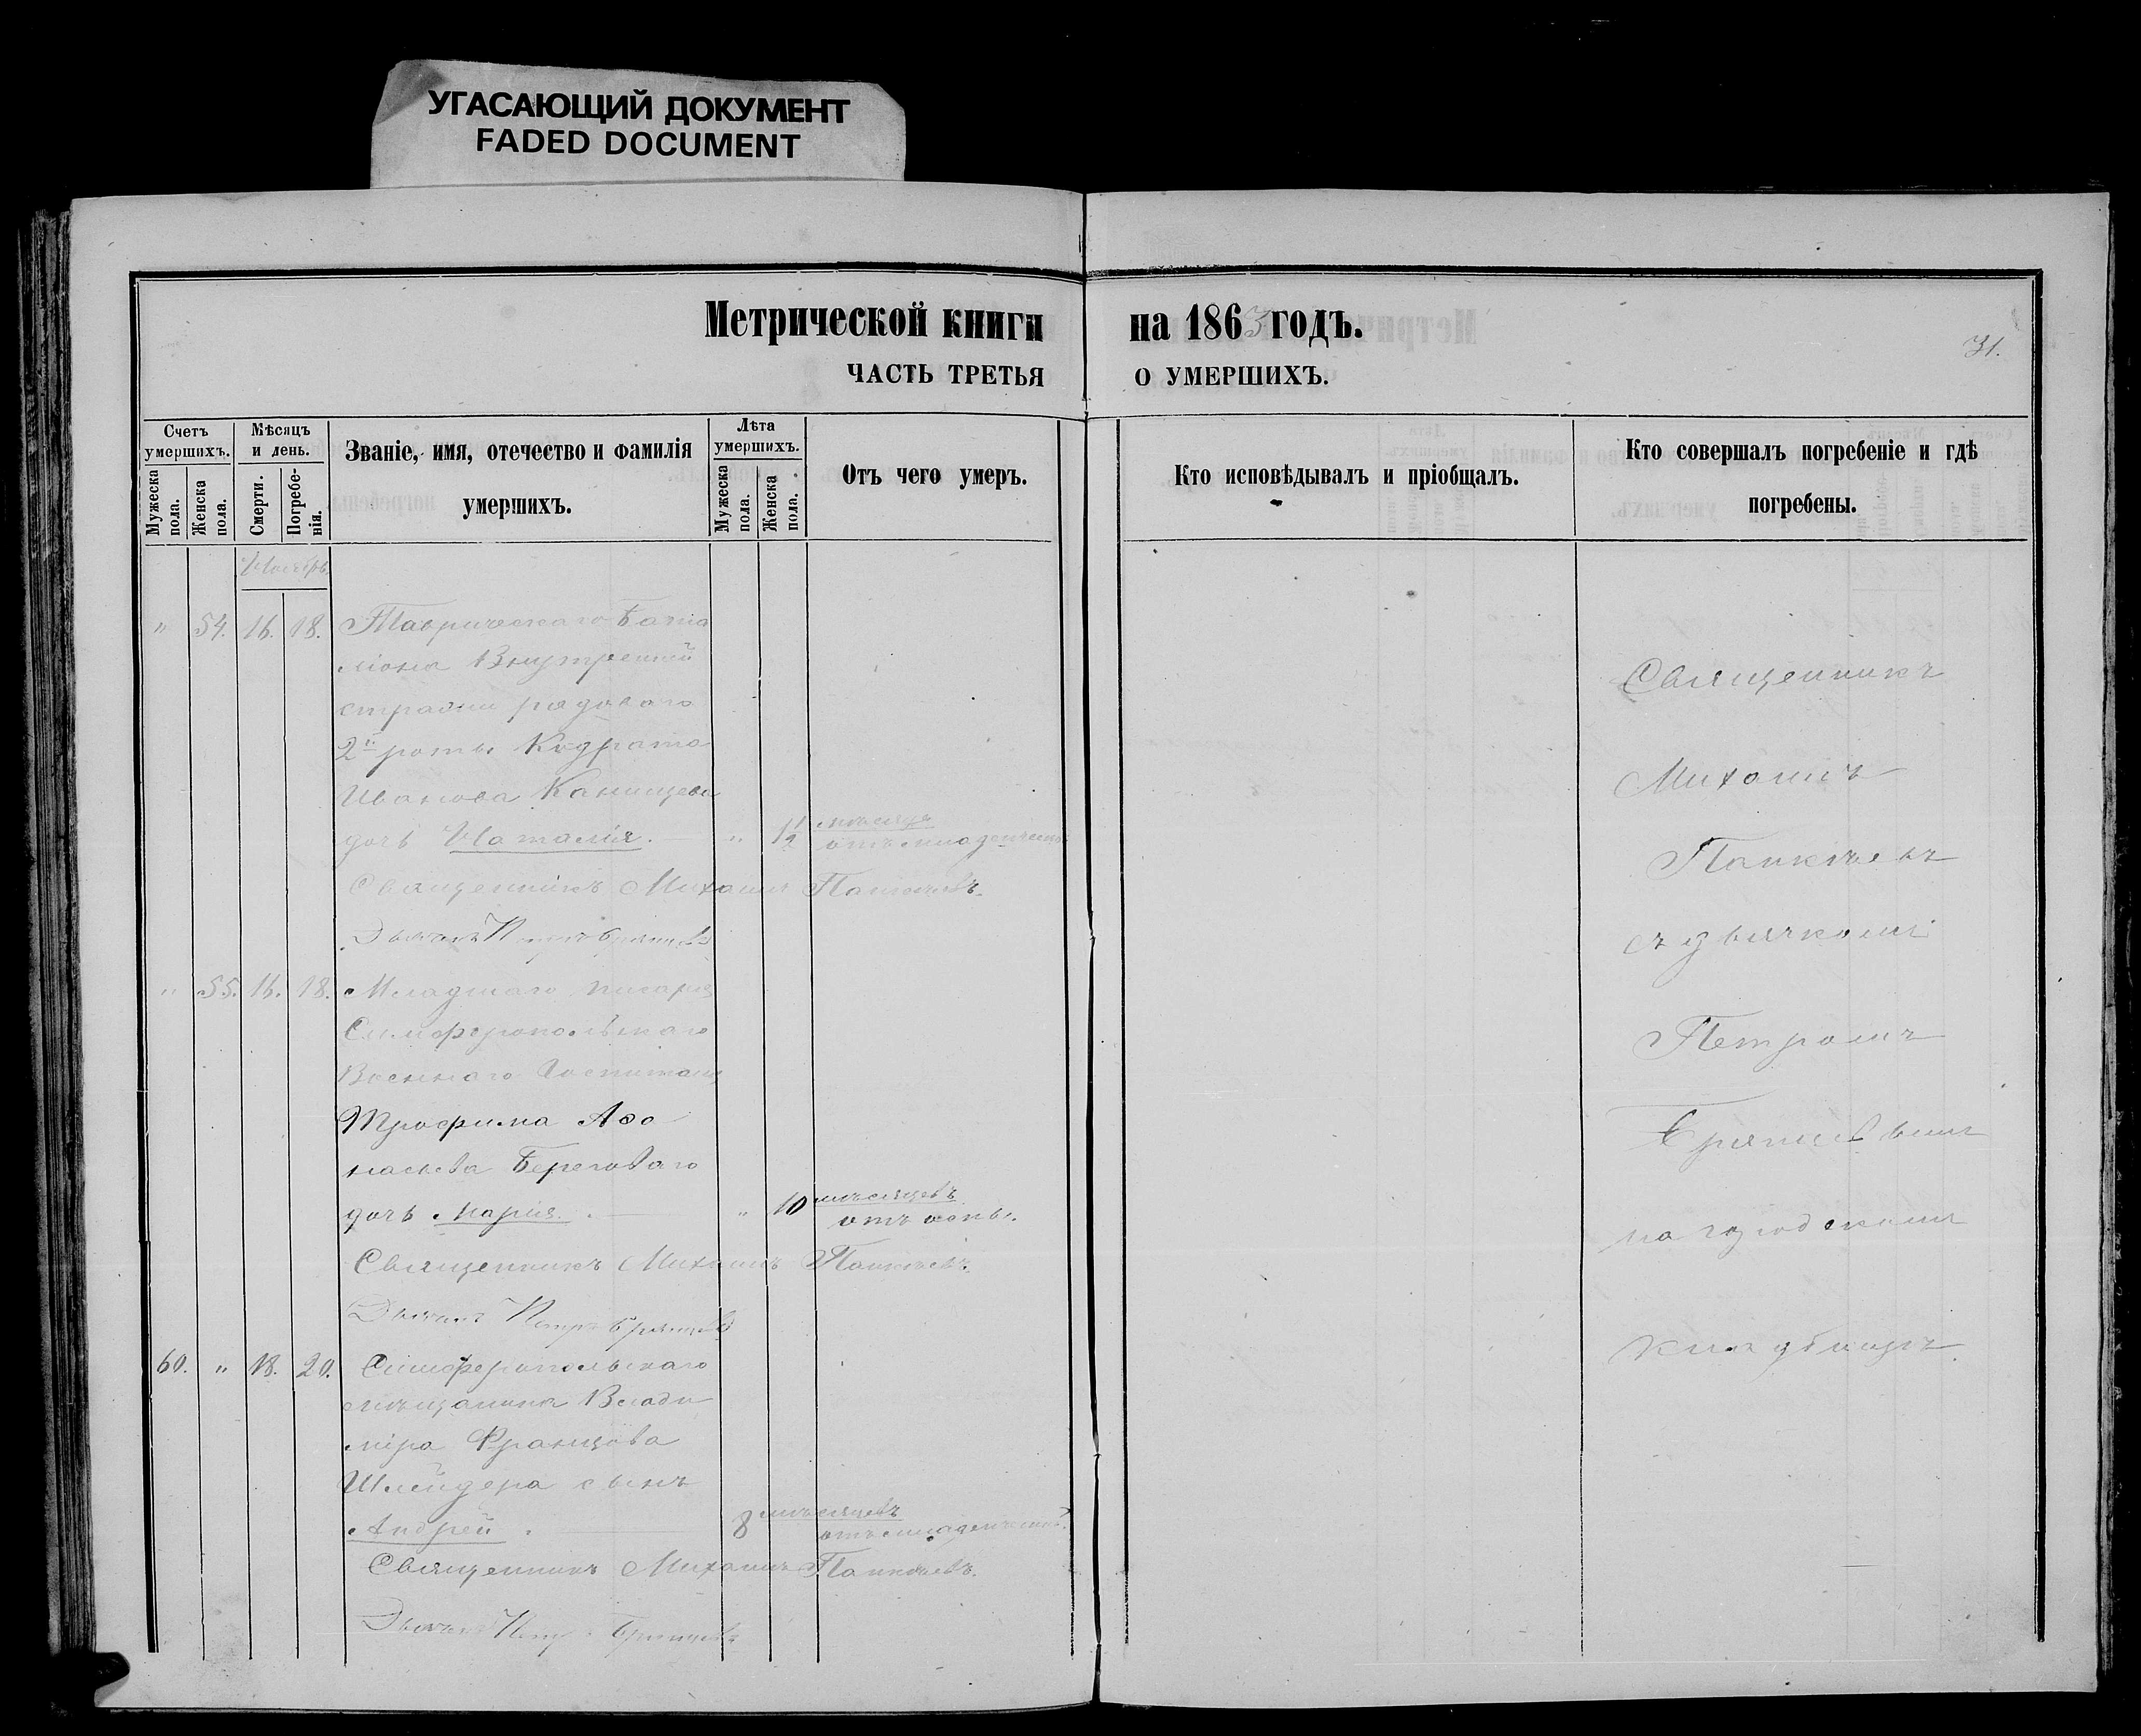 УГАСАЮЩИЙ ДОКУМЕНТ
FADED DOCUMENT
Метрической книги на 1863 годъ.
31.
ЧАСТЬ ТРЕТЬЯ О УМЕРШИХЪ.
Счетъ умершихъ.
Мужеска пола.
Женска пола.
Мѣсяцъ и день.
Смерти.
Погребенія.
Званіе, имя, отечество и фамилія умершихъ.
Лѣта умершихъ.
Мужеска пола.
Женска пола.
Отъ чего умеръ.
Кто исповѣдывалъ и пріобщалъ.
Кто совершалъ погребеніе и гдѣ погребены.
Ноябрь
" 54. 16. 18. Таврическаго Бата
ліона Внутренней
стражи рядоваго
2й роты Кодрата
Иванова
дочь Наталія. " 1 1/2 мѣсяца
отъ младенческой
Священникъ Михаилъ Панкѣевъ.
Дьячекъ Петръ Брянцевъ
" 55. 16. 18. Младшаго писаря
Симферопольскаго
Военнаго Госпиталя
Трофима Аѳо
насьева Береговаго
дочь Марія. " 10 мѣсяцевъ
отъ оспы.
Священникъ Михаилъ Панкѣевъ.
Дьячекъ Петръ Брянцевъ
60. " 18. 20. Симферопольскаго
мѣщанина Влади
міра Францова
Шнейдера сынъ
Андрей. 8 мѣсяцевъ
отъ младенческой.
Священникъ Михаилъ Панкѣевъ.
Дьячекъ Петръ Брянцевъ
Священникъ
Михаилъ
Панкѣевъ
съ дьячкомъ
Петромъ
Брянцевымъ
на городскомъ
кладбищѣ.